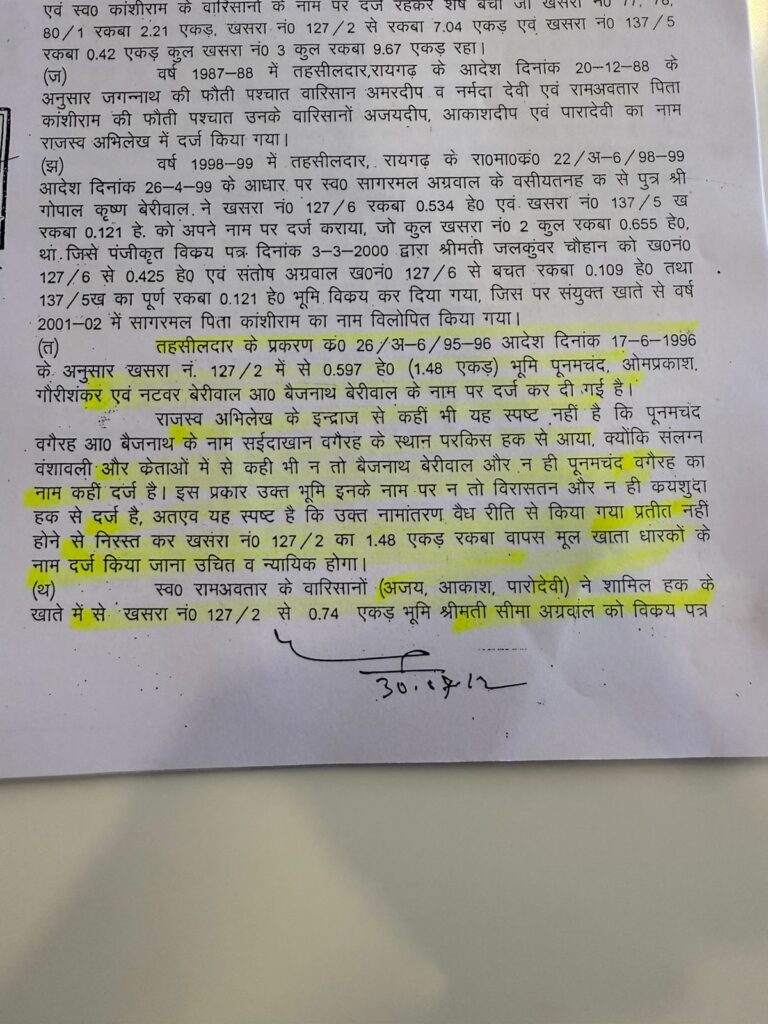 एवं स्व0 कांशीराम के वारिसानों के नाम पर दर्ज रहकर शेष बचा जो खसरा नं0 77, 78,
80/1 रकबा 2.21 एकड़, खसरा नं0 127/2 से रकबा 7.04 एकड़ एवं खसरा नं0 137/5
रकबा 0.42 एकड़ कुल खसरा नं0 3 कुल रकबा 9.67 एकड़ रहा।
(ज) वर्ष 1987-88 में तहसीलदार,रायगढ़ के आदेश दिनांक 20-12-88 के
अनुसार जगन्नाथ की फौती पश्चात वारिसान अमरदीप व नर्मदा देवी एवं रामअवतार पिता
कांशीराम की फौती पश्चात उनके वारिसानों अजयदीप, आकाशदीप एवं पारादेवी का नाम
राजस्व अभिलेख में दर्ज किया गया।
(झ) वर्ष 1998-99 में तहसीलदार, रायगढ़ के रा0मा0कं0 22/अ-6/98-99
आदेश दिनांक 26-4-99 के आधार पर स्व0 सागरमल अग्रवाल के वसीयतनह क से पुत्र श्री
गोपाल कृष्ण बेरीवाल ने खसरा नं0 127/6 रकबा 0.534 हे0 एवं खसरा नं0 137/5 ख
रकबा 0.121 हे. को अपने नाम पर दर्ज कराया, जो कुल खसरा नं0 2 कुल रकबा 0.655 हे0,
था जिसे पंजीकृत विकय पत्र दिनांक 3-3-2000 द्वारा श्रीमती जलकुंवर चौहान को ख0नं0
127/6 से 0.425 हे0 एवं संतोष अग्रवाल ख0नं0 127/6 से बचत रकबा 0.109 हे0 तथा
137/5ख का पूर्ण रकबा 0.121 हे0 भूमि विकय कर दिया गया, जिस पर संयुक्त खाते से वर्ष
2001-02 में सागरमल पिता कांशीराम का नाम विलोपित किया गया।
(त) तहसीलदार के प्रकरण कं0 26/अ-6/95-96 आदेश दिनांक 17-6-1996
के अनुसार खसरा नं. 127/2 में से 0.597 हे0 (1.48 एकड़) भूमि पूनमचंद, ओमप्रकाश,
गौरीशंकर एवं नटवर बेरीवाल आ0 बैजनाथ बेरीवाल के नाम पर दर्ज कर दी गई है।
राजस्व अभिलेख के इन्द्राज से कहीं भी यह स्पष्ट नहीं है कि पूनमचंद
वगैरह आ0 बैजनाथ के नाम सईदाखान वगैरह के स्थान परकिस हक से आया, क्योंकि संलग्न
वंशावली और क्रेताओं में से कही भी न तो बैजनाथ बेरीवाल और न ही पूनमचंद वगैरह का
नाम कहीं दर्ज है। इस प्रकार उक्त भूमि इनके नाम पर न तो विरासतन और न ही कयशुदा
हक से दर्ज है, अतएव यह स्पष्ट है कि उक्त नामांतरण वैध रीति से किया गया प्रतीत नहीं
होने से निरस्त कर खसरा नं0 127/2 का 1.48 एकड़ रकबा वापस मूल खाता धारकों के
नाम दर्ज किया जाना उचित व न्यायिक होगा।
(थ) स्व0 रामअवतार के वारिसानों (अजय, आकाश, पारोदेवी) ने शामिल हक के
खाते में से खसरा नं0 127/2 से 0.74 एकड़ भूमि श्रीमती सीमा अग्रवाल को विकय पत्र